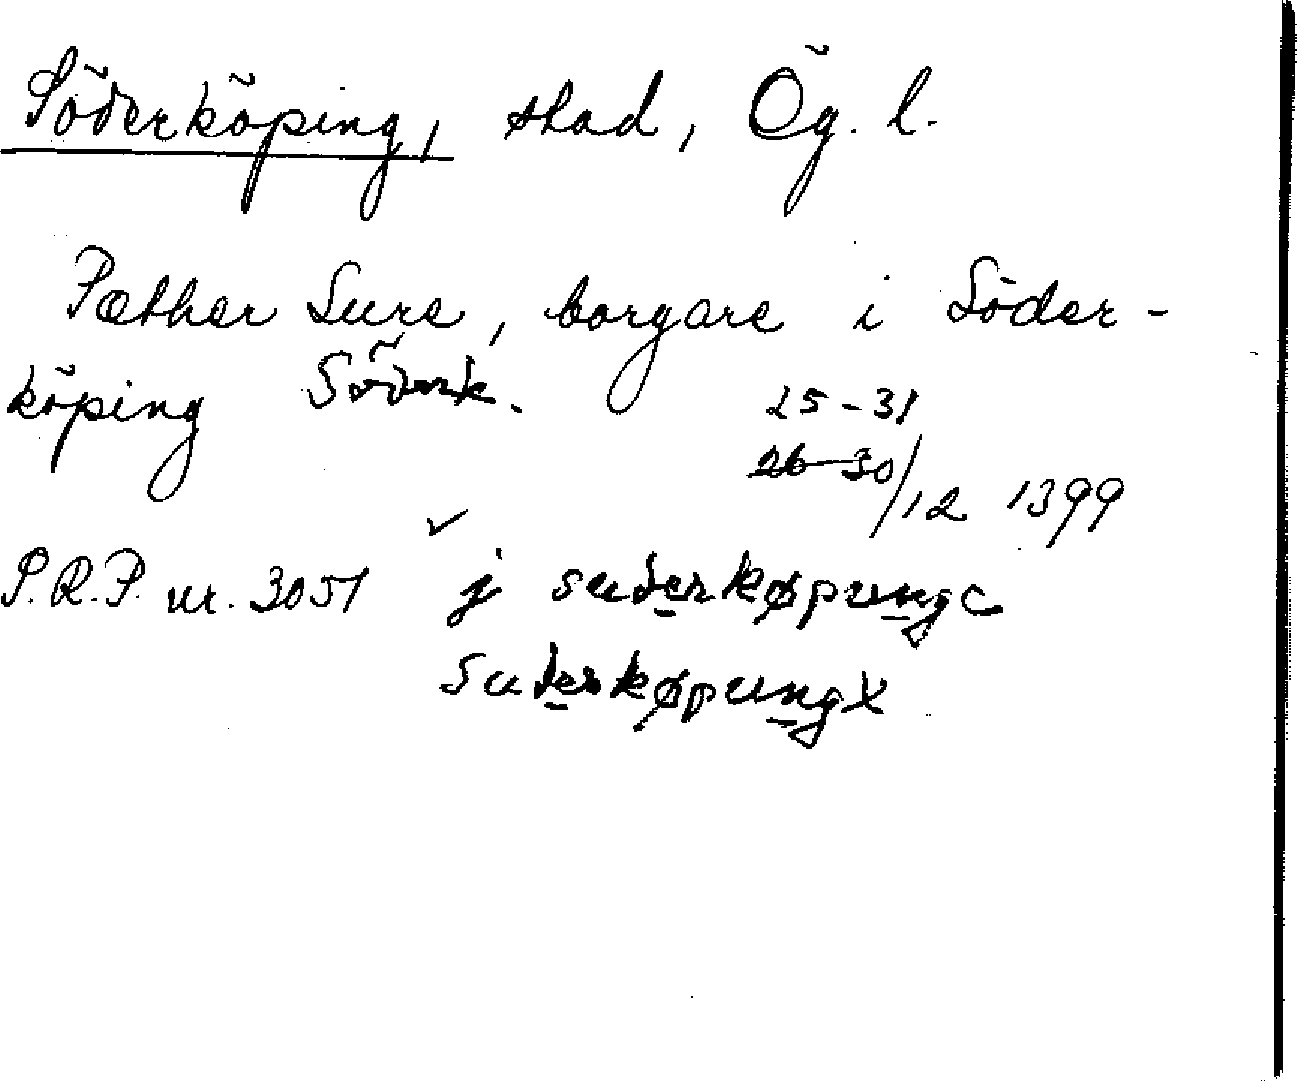 Söderköping, stad, Ög. l.
Pæther Sure, borgare i Söder-
köping Söderk. 25-31
26-30/12 1399
S.R.P. nr. 3051 j suderkøpunge
Suderkøpungx